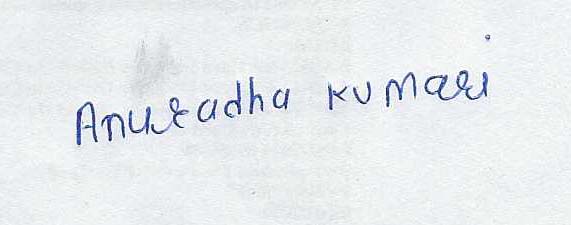 Anuradha Kumari